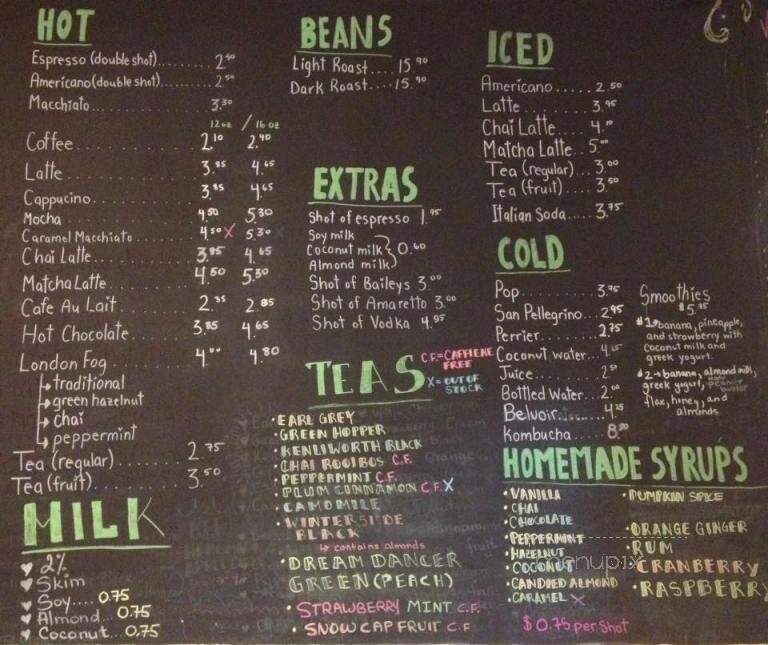 HOT
Espresso (double shot)........ 2.50
Americano (double shot)....... 2.50
Macchiato ........ 3.50
12oz / 16 oz
Coffee ........ 2.10 2.40
Latte ........ 3.85 4.65
Cappucino ........ 3.85 4.65
Mocha ........ 4.50 5.30
Caramel Macchiato ........ 4.50 X 5.30 X
Chai Latte ........ 3.85 4.65
Matcha Latte ........ 4.50 5.30
Cafe Au Lait ........ 2.35 2.85
Hot Chocolate ........ 3.85 4.65
London Fog ........ 4.00 4.80
traditional
green hazelnut
chai
peppermint
Tea (regular) ........ 2.75
Tea (fruit) ........ 3.50
MILK
2%
Skim
Soy .... 0.75
Almond .... 0.75
Coconut ... 0.75
BEANS
Light Roast .... 15.90
Dark Roast .... 15.90
EXTRAS
Shot of espresso 1.95
Soy milk
Coconut milk } 0.60
Almond milk
Shot of Baileys 3.00
Shot of Amaretto 3.00
Shot of Vodka 4.95
TEAS
C.F.= CAFFIENE FREE
X = OUT OF STOCK
• EARL GREY
• GREEN HOPPER
• KENLIWORTH BLACK
• CHAI ROOIBOS C.F.
• PEPPERMINT C.F.
• PLUM CINNAMON C.F. X
• CAMOMILE
• WINTERSIDE
BLACK
contains almonds
• DREAM DANCER
GREEN (PEACH)
• STRAWBERRY MINT C.F.
• SNOW CAP FRUIT C.F
ICED
Americano ..... 2.50
Latte ..... 3.95
Chai Latte .... 4.10
Matcha Latte .. 5.00
Tea (regular) .... 3.00
Tea (fruit) .... 3.50
Italian Soda .... 3.75
COLD
Pop ........ 3.75
San Pellegrino .... 2.95
Perrier ........ 2.75
Coconut water ... 4.25
Juice ........ 2.50
Bottled Water ... 2.00
Belvoir ........ 4.25
Kombucha ..... 8.00
Smoothies
$5.75
#1→ banana, pineapple,
and strawberry with
coconut milk and
greek yogurt.
#2→ banana, almond milk,
greek yogurt, peanut butter
flax, honey, and
almonds
HOMEMADE SYRUPS
• VANILLA
• CHAI
• CHOCOLATE
• PEPPERMINT
• HAZELNUT
• COCONUT
• CANDIED ALMOND
• CARAMEL X
• PUMPKIN SPICE
• ORANGE GINGER
• RUM
• CRANBERRY
• RASPBERRY
$0.75 per shot